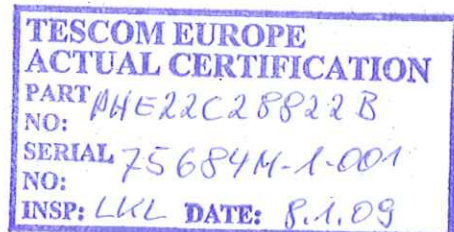 TESCOM EUROPE
ACTUAL CERTIFICATION
PART PHE22C28822B
NO:
SERIAL 75684M-1-001
NO:
INSP: LKL DATE: 8.1.09